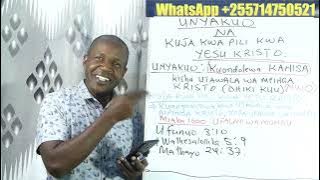 WhatsApp +255714750521
UNYAKUO
NA
KUJA KWA PILI KWA
YESU KRISTO
UNYAKUO: Kuondolewa KANISA
kisha UTAWALA WA MPINGA
KRISTO (DHIKI KUU)
Miaka 1000 UFALME WA
Ufunuo 3:10
1 Wathesalonike 5:9
Mathayo 24:37